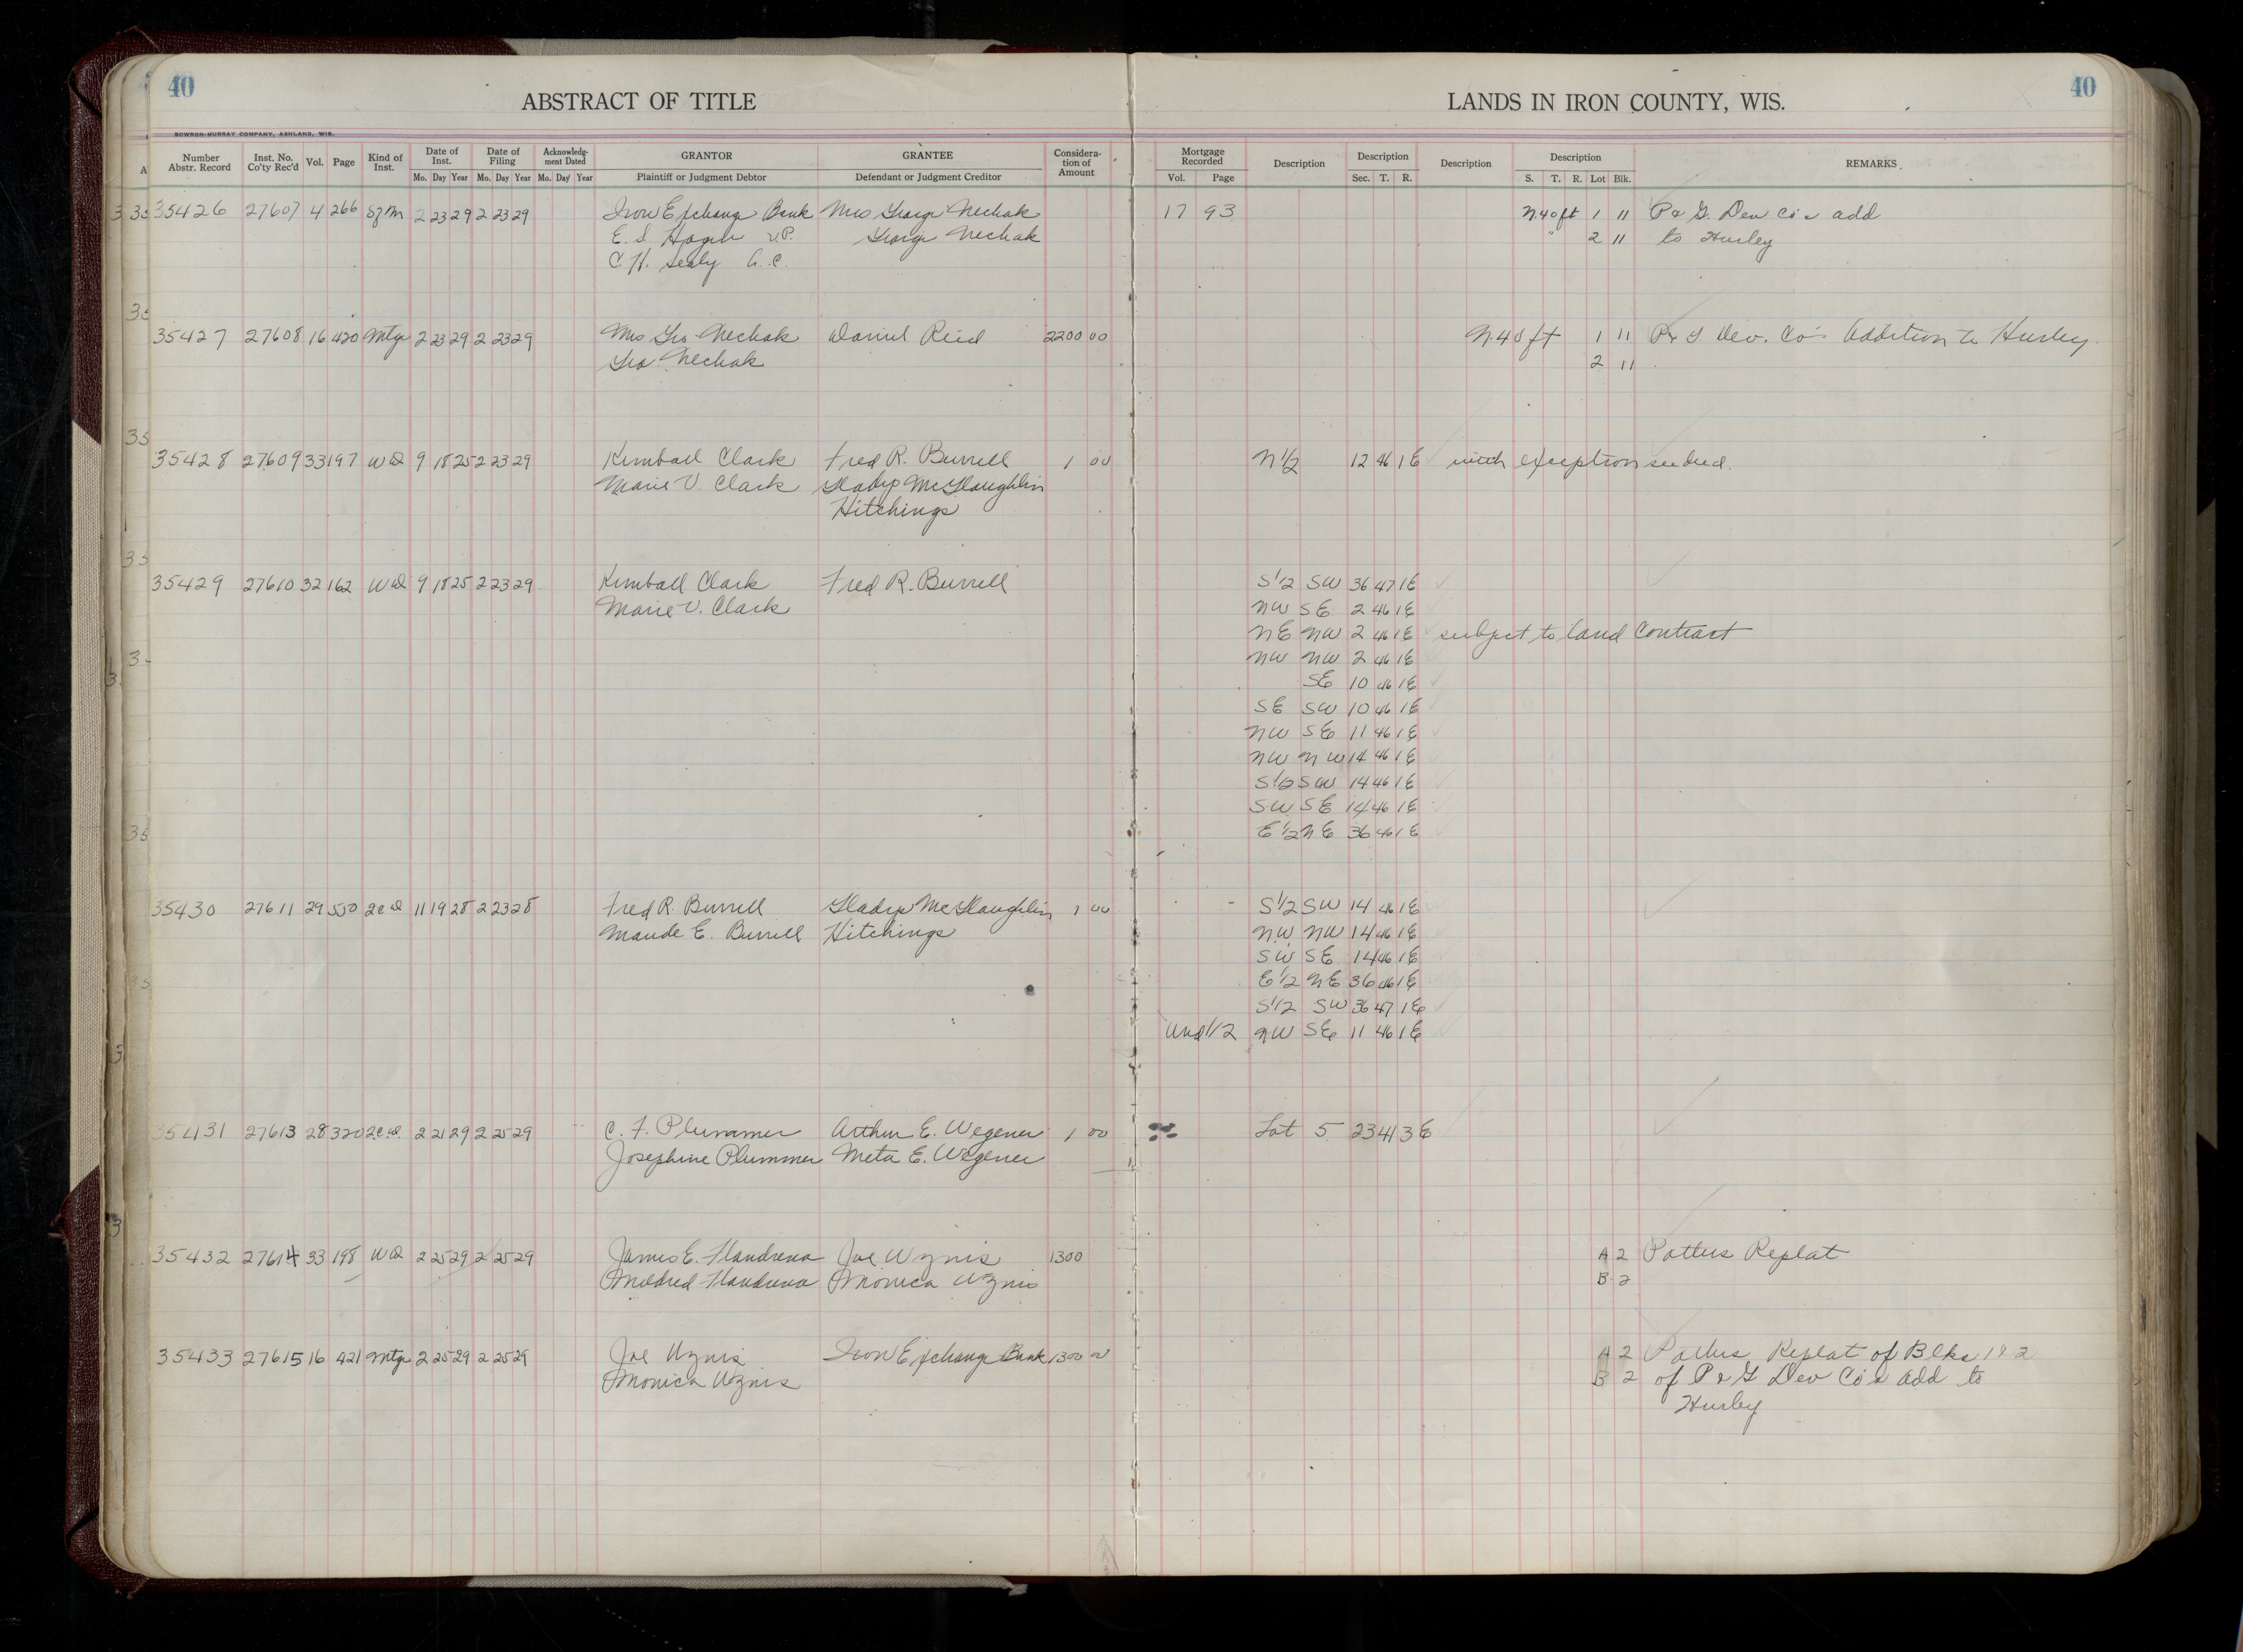 40
ABSTRACT OF TITLE
LANDS IN IRON COUNTY, WIS.
40
BOWRON-MURRAY COMPANY, ASHLAND, WIS.
Number Abstr. Record | Inst. No. Co'ty Rec'd | Vol. | Page | Kind of Inst. | Date of Inst. Mo. Day Year | Date of Filing Mo. Day Year | Acknowledg-ment Dated Mo. Day Year | GRANTOR Plaintiff or Judgment Debtor | GRANTEE Defendant or Judgment Creditor | Considera-tion of Amount | Mortgage Recorded Vol. Page | Description | Description Sec. T. R. | Description | Description S. T. R. Lot Blk. | REMARKS
35426 27607 4 266 2 23 29 2 23 29 Iron Exchange Bank Mrs George Nechak 17 93 N. 40 ft 1 11 P & G. Dev Co's add
E. S. V.P. George Nechak " 2 11 to Hurley
C H. Sealy A. C.
35427 27608 16 420 Mtge 2 23 29 2 23 29 Mrs Geo Nechak Daniel Reid 2200 00 N. 40 ft 1 11 P & G Dev. Co's Addition to Hurley.
Geo Nechak 2 11
35428 27609 33 197 W D 9 18 25 2 23 29 Kimball Clark Fred R. Burrell 1 00 N 1/2 12 46 1 E with exception see deed.
Marie V. Clark Gladys McGlaughlin
Hitchings
35429 27610 32 162 W D 9 18 25 2 23 29 Kimball Clark Fred R. Burrell S 1/2 SW 36 47 1 E
Marie V. Clark NW SE 2 46 1 E
NE NW 2 46 1 E subject to land contract
NW NW 2 46 1 E
SE 10 46 1 E
SE SW 10 46 1 E
NW SE 11 46 1 E
NW NW 14 46 1 E
S 1/2 SW 14 46 1 E
SW SE 14 46 1 E
E 1/2 NE 36 46 1 E
35430 27611 29 550 2 C D 11 19 28 2 23 28 Fred R. Burrell Gladys McGlaughlin 1 00 S 1/2 SW 14 46 1 E
Maude E. Burrell Hitchings NW NW 14 46 1 E
SW SE 14 46 1 E
E 1/2 NE 36 46 1 E
S 1/2 SW 36 47 1 E
Und 1/2 NW SE 11 46 1 E
35431 27613 28 320 2 C. D. 2 21 29 2 25 29 C. F. Plummer Arthur E. Wegener 1 00 Lot 5 23 41 3 E
Josephine Plummer Meta E. Wegener
35432 27614 33 198 W D 2 25 29 2 25 29 James E. Flandrena Joe Uznis 1300 A 2 Pattus Replat
Mildred Flandrena Monica Uznis B 2
35433 27615 16 421 Mtge 2 25 29 2 25 29 Joe Uznis Iron Exchange Bank 1300 00 A 2 Pattus Replat of Blks 1 & 2
Monica Uznis B 2 of P & G Dev Co's add to
Hurley